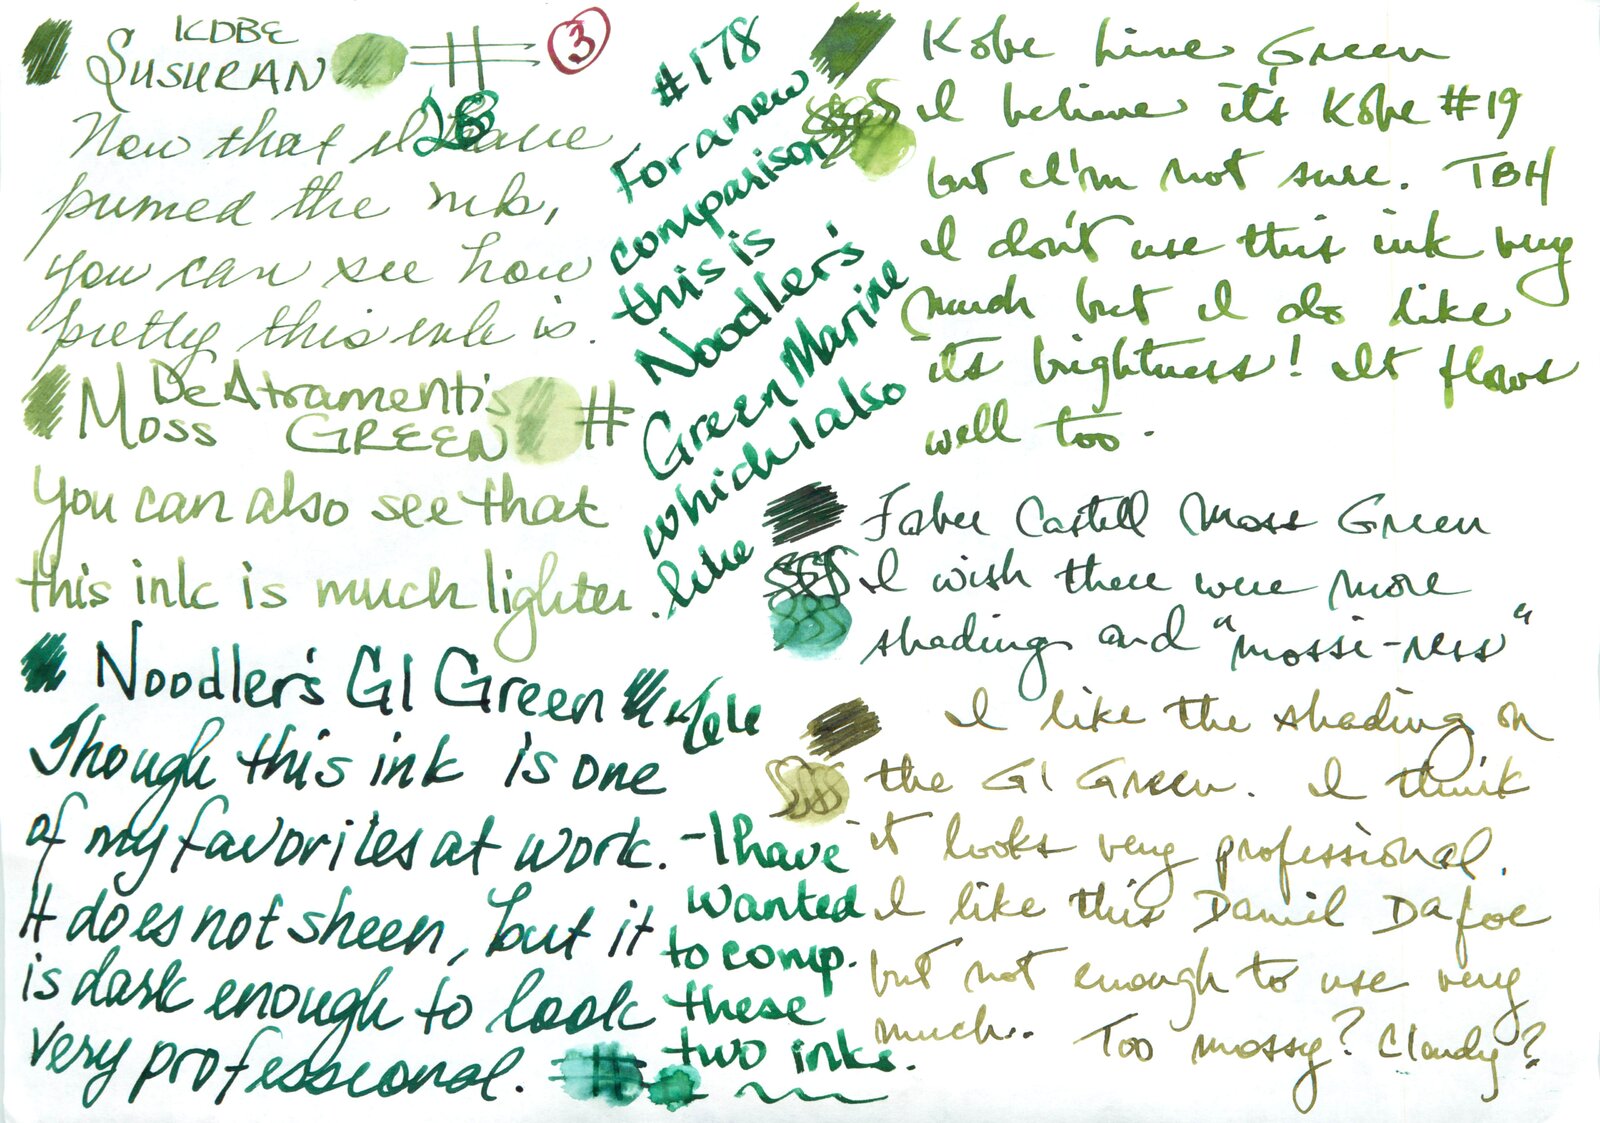 KOBE
SUSURAN
#
3
28
Now that I have
pumed the ink,
you can see how
pretty this ink is.
De Atramentis
MOSS GREEN
#
You can also see that
this ink is much lighter.
Noodler's GI Green
Though this ink is one
of my favorites at work.
It does not sheen, but it
is dark enough to look
very professional.
#178
For a new
comparison
this is
Noodler's
Green Marine
which I also
like
- I have
wanted
to comp.
these
two inks.
Kobe Lime Green
I believe it's Kobe #19
but I'm not sure. TBH
I don't use this ink very
much but I do like
its brightness! It flows
well too.
Faber Castell Moss Green
I wish there were more
shading and "mossi-ness"
I like the shading on
the GI Green. I think
it looks very professional.
I like this Daniel Dafoe
but not enough to use very
much. Too mossy? Cloudy?